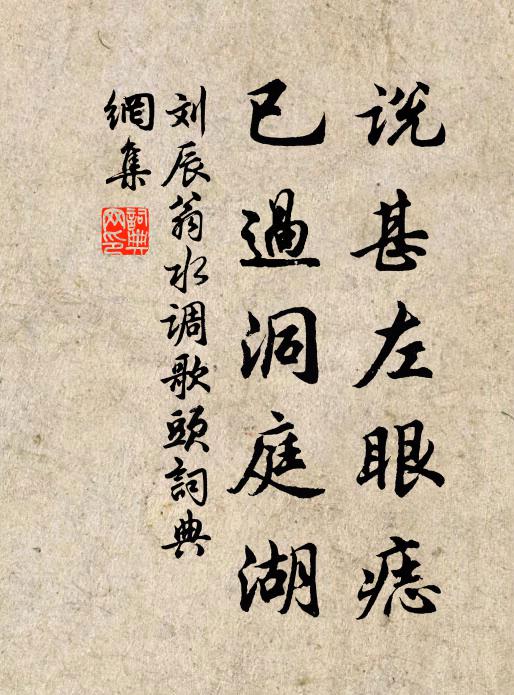 说甚左眼痣
已過洞庭湖
刘辰翁水调歌頭詞典
網集
詞典網印